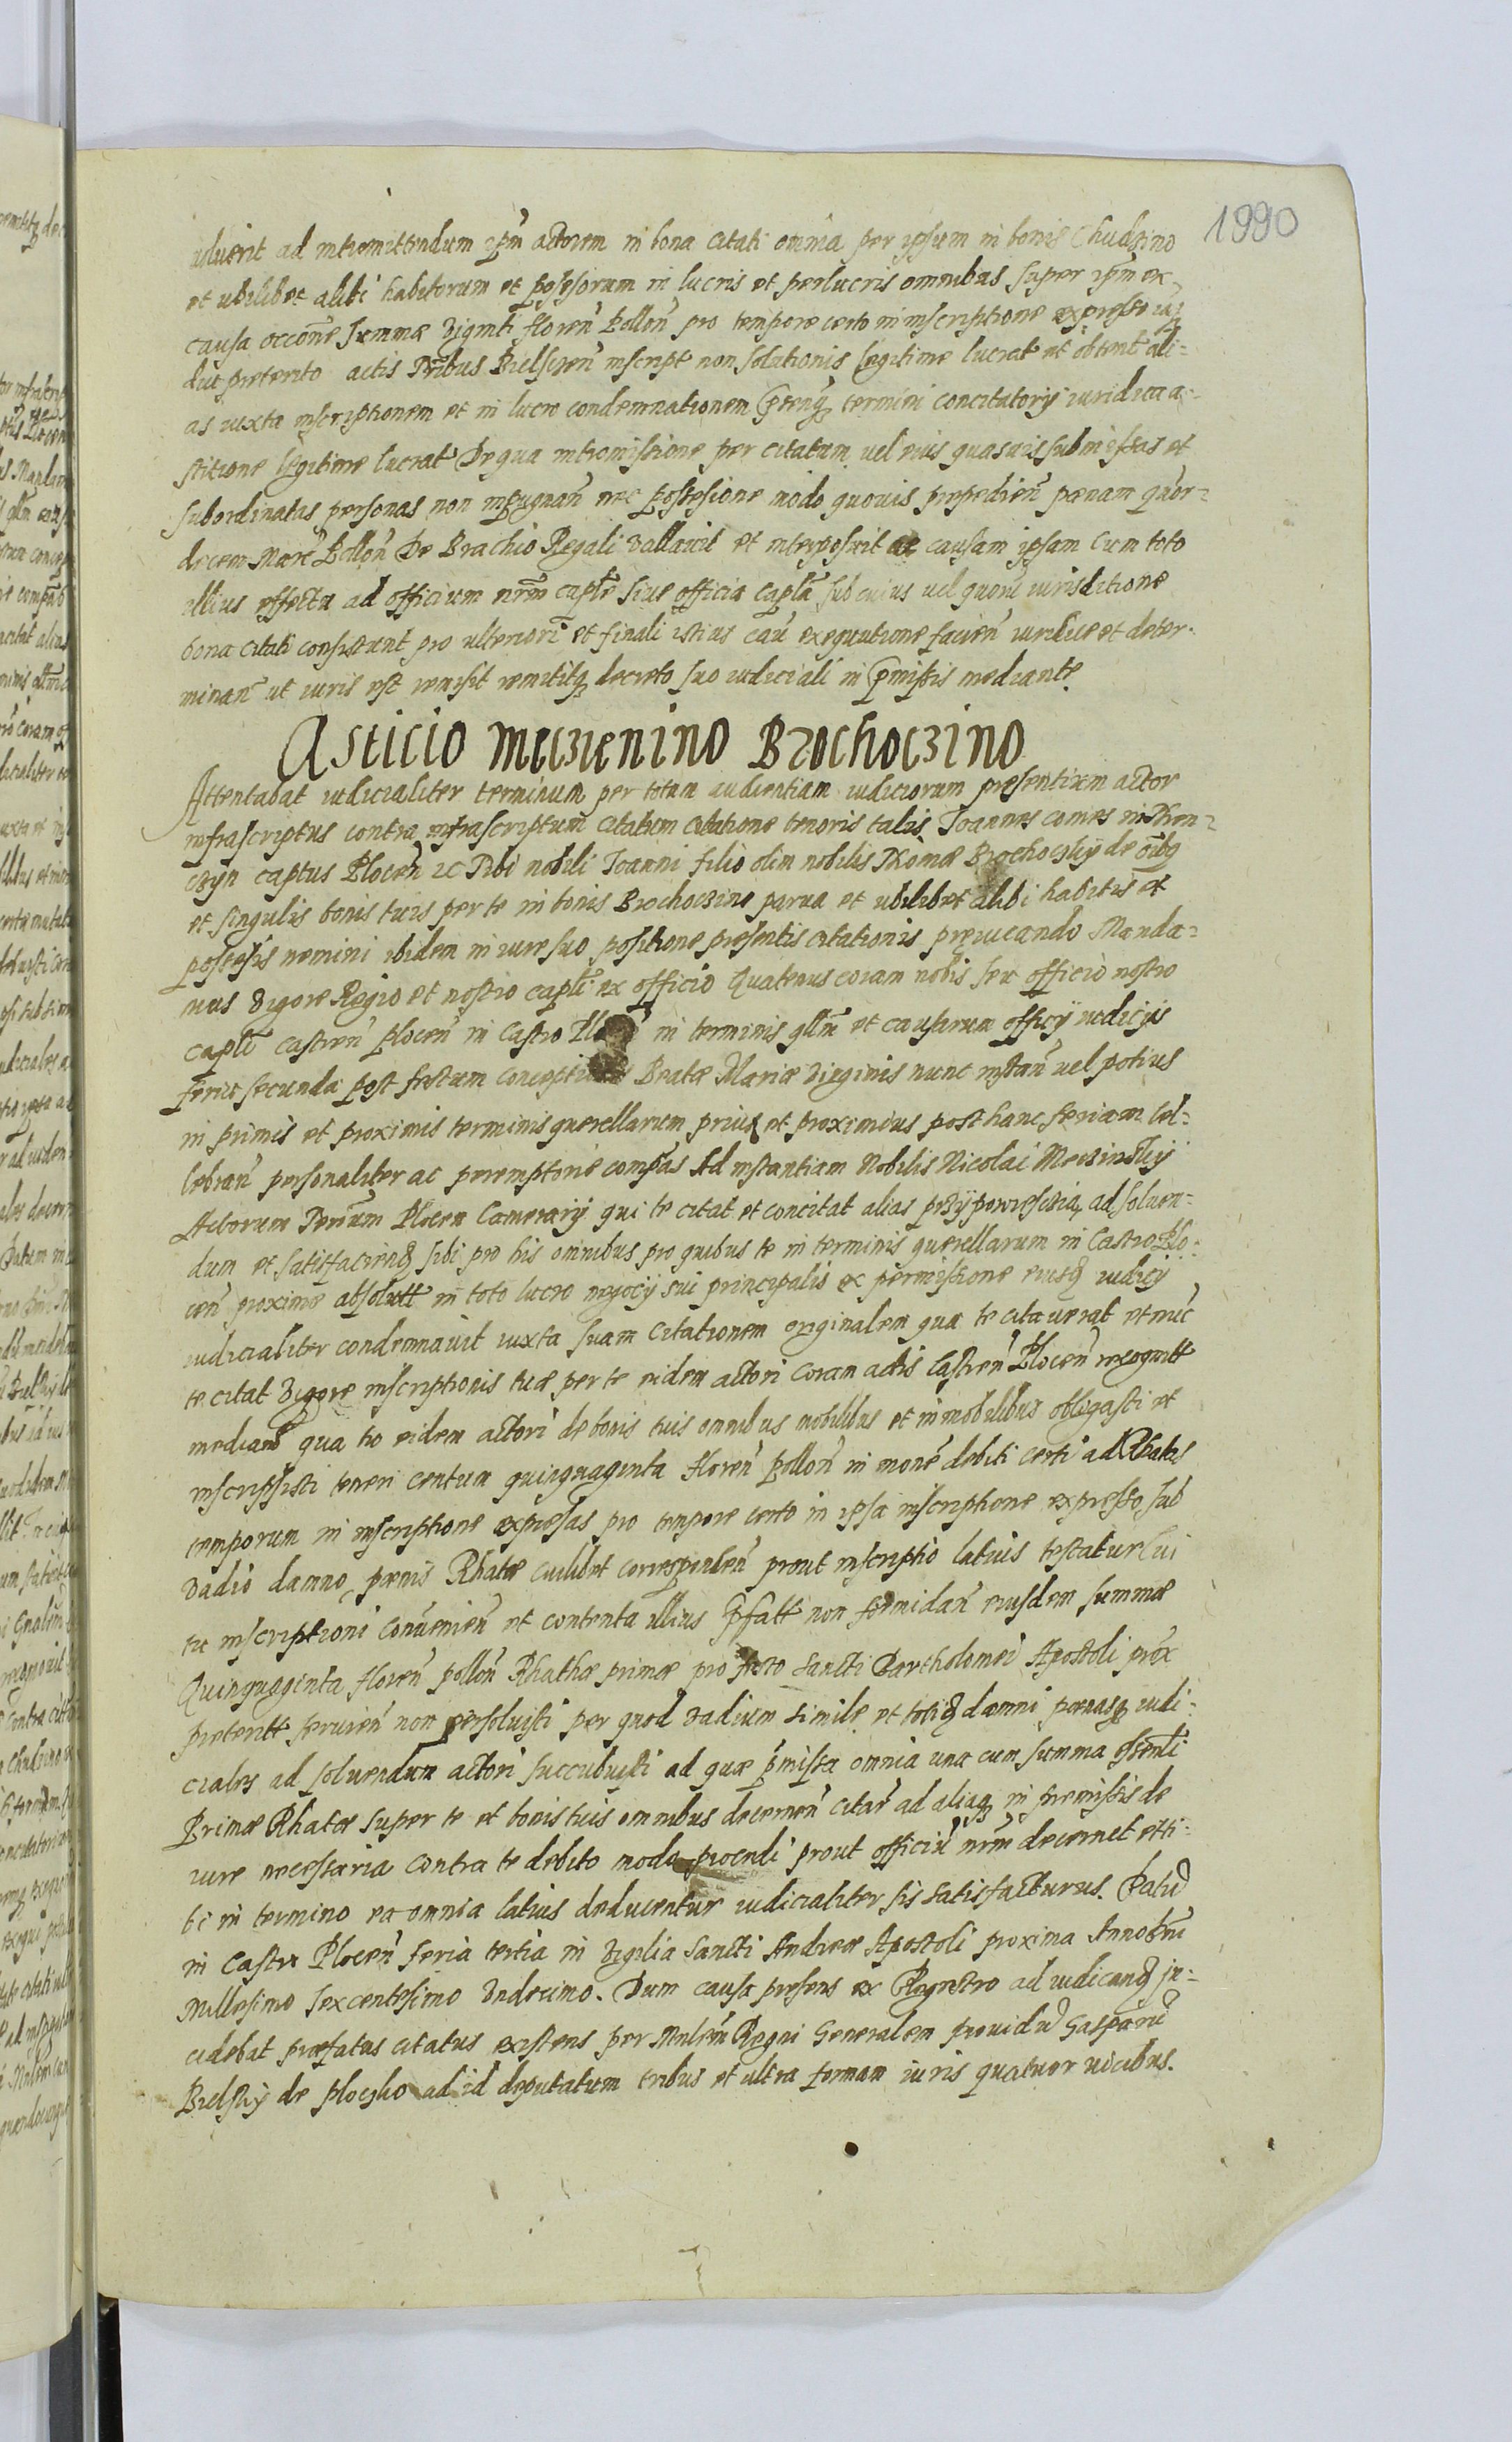 1990
aduerit ad intromittendum ipm̃ actorem in bona citati omnia per ipsum in bonis Chudzino
et ubilibet alibi habitorum et possessorum in lucris et perlucris omnibus super ipm̃ ex
causa occoñe summæ viginti floreñ Polloñ pro tempore certo in inscriptione expresso iaj
dut preterito actis Tr̃ibus Bielscen̄ inscript non solutionis legitime lucrat et obtent ali-
as iuxta inscriptionem et in lucro condemnationem termini concitatorij iuridica a-
stitione legitime lucrat De qua intromissione per citatum vel eius quasuis submissas et
subordinatas personas non impugnan̄ nec possessione modo quouis prepedien̄ pænam quor-
decem Marc̄ Pollon̄ De Brachio Regali vallauit et interposuit ac causam ipsam cum toto
illius effectu ad officium nr̃m capl̃e siue officia capl̃a sub cuius vel quoru iurisditione
bona citati consistunt pro ulteriori et finali istius cau exequutione facien̄ iuridice et deter-
minan̄ ut iuris est remisit remititq decreto suo iudiciali in p̃missis mediante
Asticio Meczienino Brochoczino
Attentabat iudicialiter terminum per totam audientiam iudiciorum presentium actor
infrascriptus contra infrascriptum citatum citatione tenoris talis Joannes comes in Thon-
czyn captus Plocen̄ ec Tibi nobili Joanni filio olim nobilis Thomæ Brochoczky de oĩbq
et singulis bonis tuis per te in bonis Brochoczino parua et ubilibet alibi habitis et
possessis nemini ibidem in iure suo positione presentis citationis preiucando Manda-
mus vigore Regio et nostro capl̃i ex officio Quatenus coram nobis seu officio nostro
capl̃i castren̄ Plocen̄ in Castro in terminis qllm̃ et causarum officij iudicijs
feria secunda post festum Conceptionis Beatæ Mariæ Virginis nunc instan̄ vel potius
in primis et proximis terminis querellarum prius et proximius post hanc feriam cel-
lebran̄ personaliter ac peremptorie compas Ad instantiam Nobilis Nicolai Meczinskij
Actorum Terr̃um Plocen Camerarij qui te citat et concitat alias przypowiescia, ad soluen-
dum et satisfaciendq sibi pro his omnibus pro quibus te in terminis querellarum in Castro Plo-
cen̄ proxime absolutt in toto lucro negocij sui principalis ex permissione eiusq iudicij
iudicialiter condemnauit iuxta suam citationem originalem qua te citauerat et nuc
te citat vigore inscriptionis tuæ per te eidem actori coram actis Castren̄ Plocen̄ recognitt
median̄ qua tio eidem actori de bonis tuis omnibus mobilibus et immobilibus obligasti et
inscripsisti teneri centum quinquaginta floren̄ pollon̄ in mone debiti certi ad Rhatas
temporum in inscriptione expressas pro tempore certo in ipsa inscriptione expresso sub
vadio damno pænis Rhatæ cuilibet corresponden̄ prout inscriptio latius testatur Cui
tu inscriptioni conuenien̄ et contenta illius p̃fatt non formidan̄ eiusdem summæ
Quinquaginta floren̄ pollon̄ Rhathæ primæ pro festo Sancti Bartholomei Apostoli prox
preteritt seruien̄ non persoluisti per quod vadium simile et totiq damni pænasq iudi-
ciales ad soluendum actori succubuisti ad quæ p̃missa omnia una cum summa
Primæ Rhatæ super te et bonis tuis omnibus decernen̄ citar̄ ad aliaq in premissis de
iure necessaria contra te debito modo procendi prout officiu nr̃m decernet etti-
bi in termino ea omnia latius deducentur iudicialiter sis satisfacturus. Datu
in Castro Plocen̄ feria tertia in vigilia Sancti Andreæ Apostoli proxima Anno Dni
millesimo sexcentesimo Undecimo. Dum causa presens ex Regestro ad iudicand in-
cidebat præfatus citatus existens per Mnlem̃ Regni Generalem prouidu Gasparu
Bielsky de Ploczko ad id deputatum tribus et ultra formam iuris quatuor vicibus.